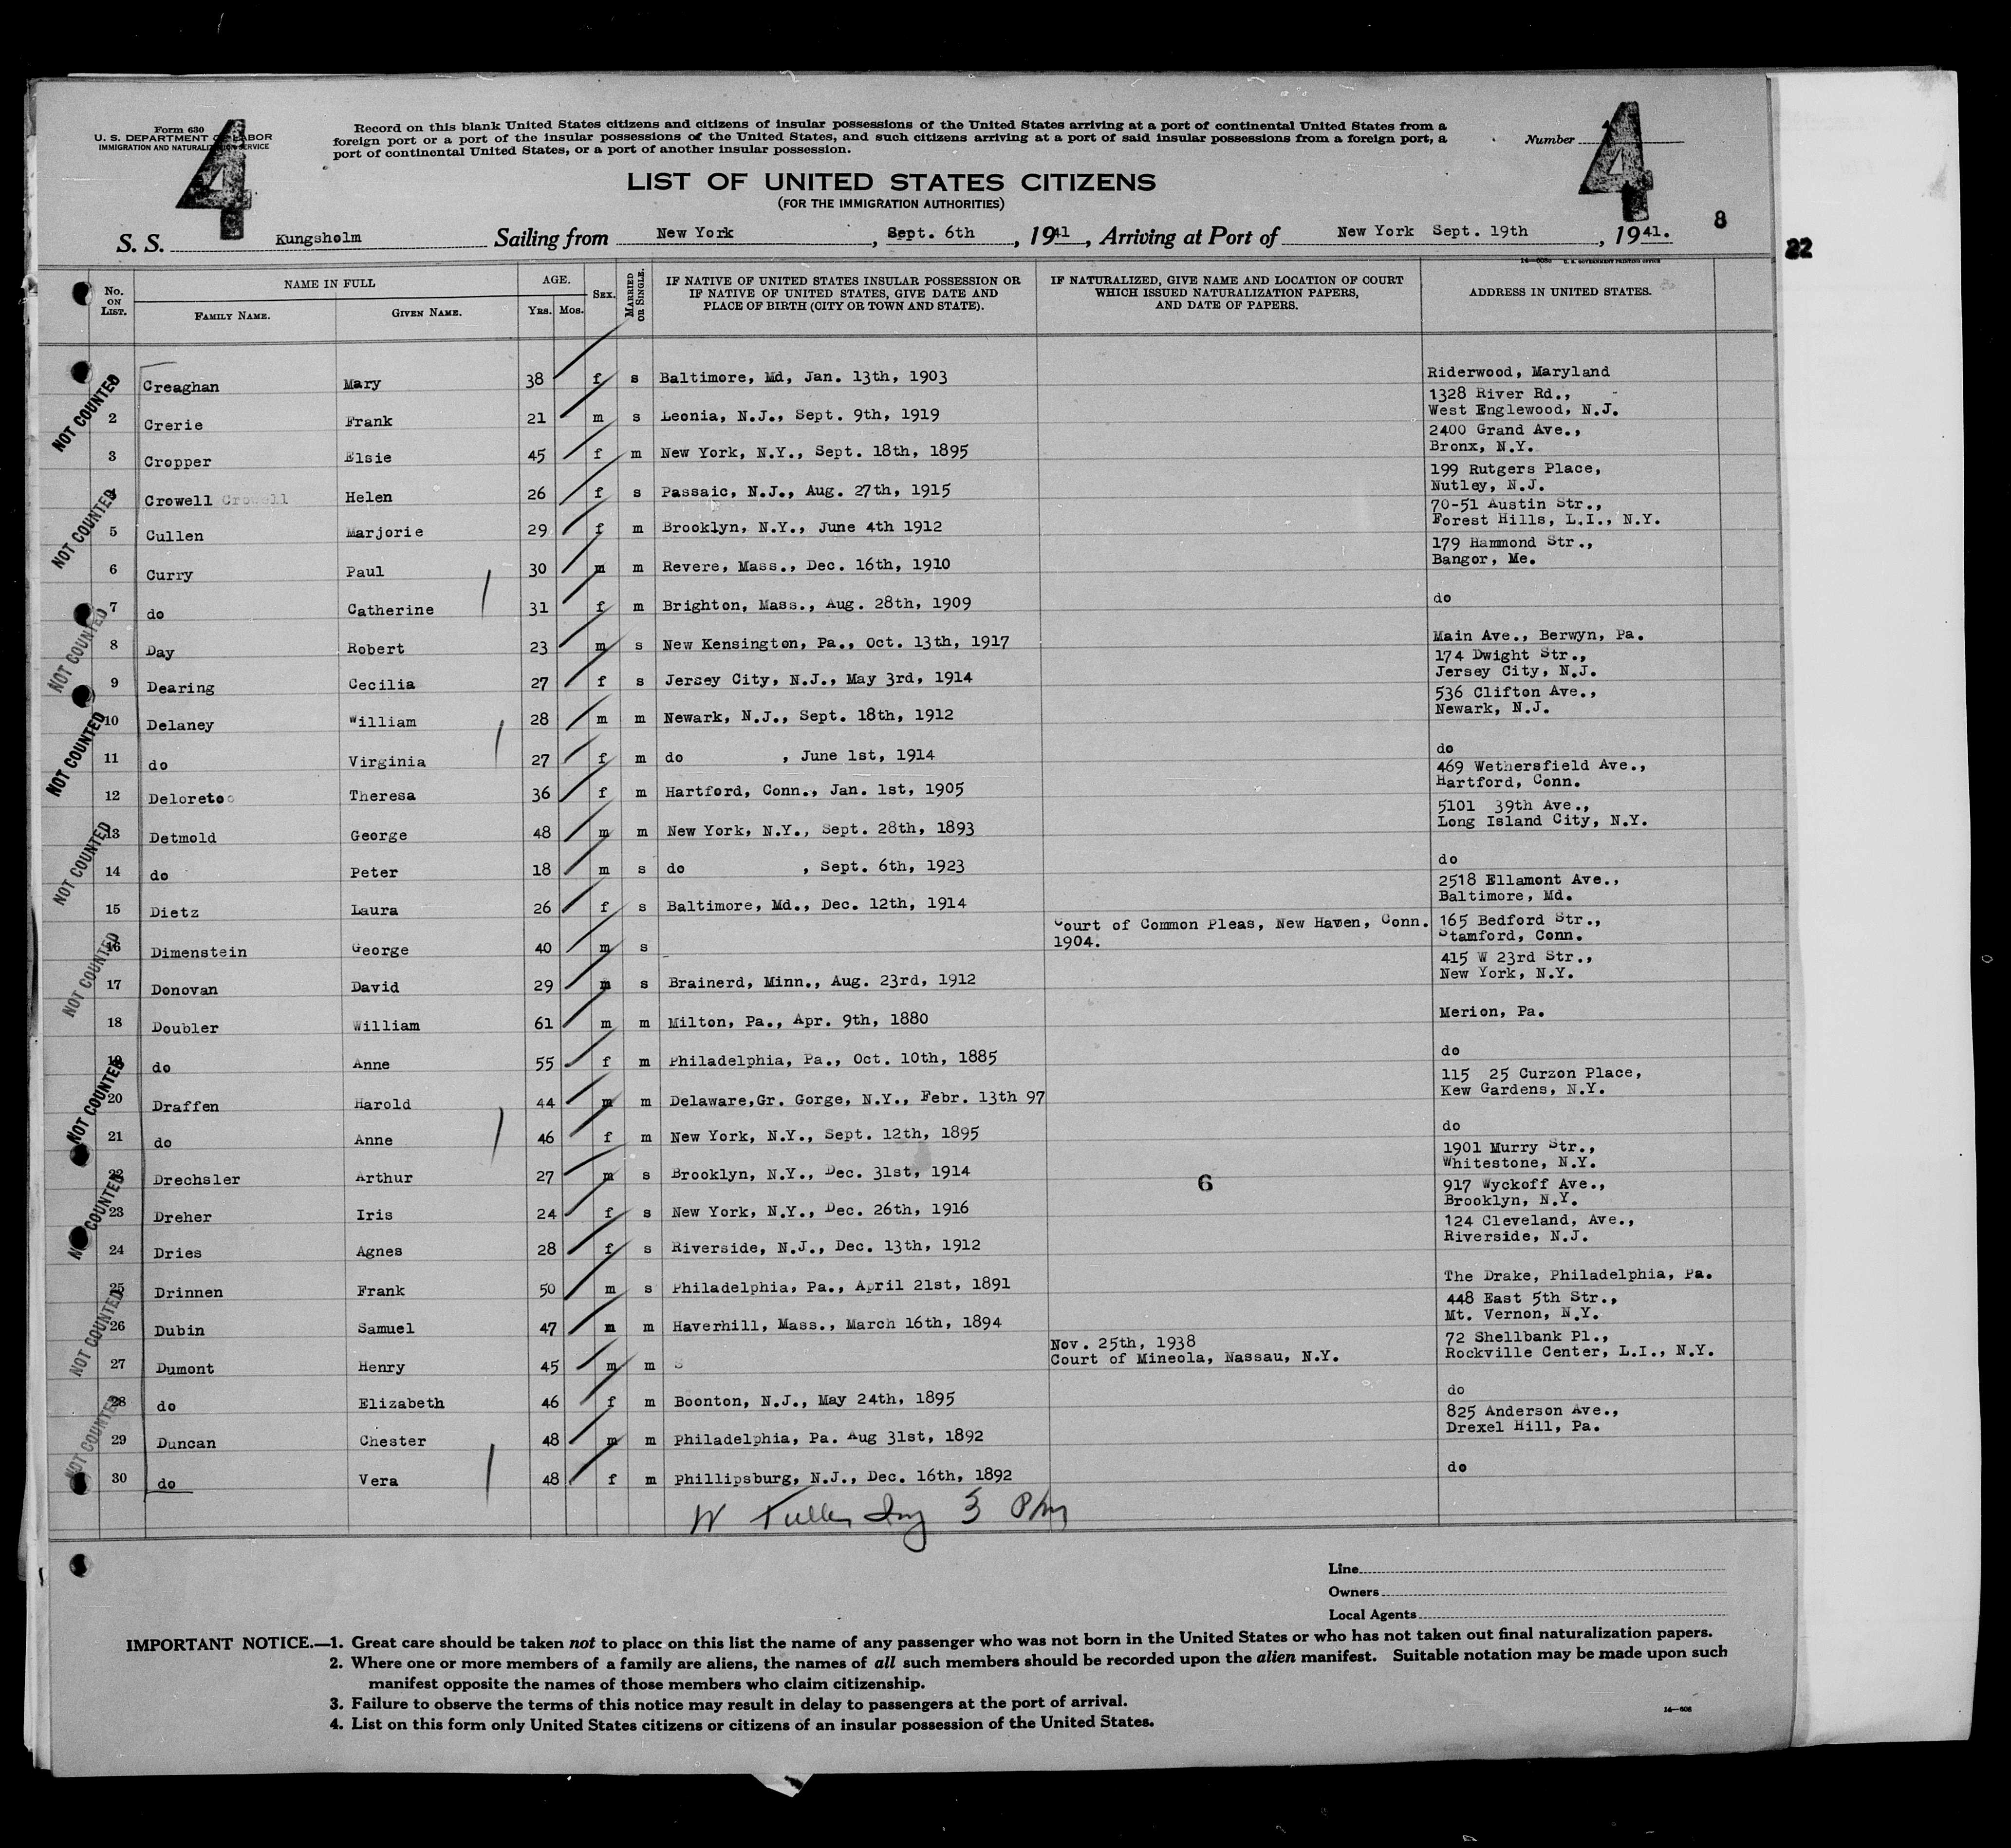 Form 630
U. S. DEPARTMENT OF LABOR
IMMIGRATION AND NATURALIZATION SERVICE
4
Record on this blank United States citizens and citizens of insular possessions of the United States arriving at a port of continental United States from a
foreign port or a port of the insular possessions of the United States, and such citizens arriving at a port of said insular possessions from a foreign port, a
port of continental United States, or a port of another insular possession.
Number
4
LIST OF UNITED STATES CITIZENS
(FOR THE IMMIGRATION AUTHORITIES)
8
22
S. S. Kungsholm Sailing from New York, Sept. 6th, 1941, Arriving at Port of New York Sept. 19th, 1941.
U. S. GOVERNMENT PRINTING OFFICE
No. ON LIST. NAME IN FULL FAMILY NAME. GIVEN NAME. AGE. YRS. MOS. SEX. MARRIED OR SINGLE. IF NATIVE OF UNITED STATES INSULAR POSSESSION OR IF NATIVE OF UNITED STATES, GIVE DATE AND PLACE OF BIRTH (CITY OR TOWN AND STATE). IF NATURALIZED, GIVE NAME AND LOCATION OF COURT WHICH ISSUED NATURALIZATION PAPERS, AND DATE OF PAPERS. ADDRESS IN UNITED STATES.
Creaghan Mary 38 f s Baltimore, Md, Jan. 13th, 1903 Riderwood, Maryland
2 Crerie Frank 21 m s Leonia, N.J., Sept. 9th, 1919 1328 River Rd., West Englewood, N.J.
3 Cropper Elsie 45 f m New York, N.Y., Sept. 18th, 1895 2400 Grand Ave., Bronx, N.Y.
4 Crowell Crowell Helen 26 f s Passaic, N.J., Aug. 27th, 1915 199 Rutgers Place, Nutley, N.J.
5 Cullen Marjorie 29 f m Brooklyn, N.Y., June 4th 1912 70-51 Austin Str., Forest Hills, L.I., N.Y.
6 Curry Paul 30 m m Revere, Mass., Dec. 16th, 1910 179 Hammond Str., Bangor, Me.
7 do Catherine 31 f m Brighton, Mass., Aug. 28th, 1909 do
8 Day Robert 23 m s New Kensington, Pa., Oct. 13th, 1917 Main Ave., Berwyn, Pa.
9 Dearing Cecilia 27 f s Jersey City, N.J., May 3rd, 1914 174 Dwight Str., Jersey City, N.J.
10 Delaney William 28 m m Newark, N.J., Sept. 18th, 1912 536 Clifton Ave., Newark, N.J.
11 do Virginia 27 f m do , June 1st, 1914 do
12 Deloreto Theresa 36 f m Hartford, Conn., Jan. 1st, 1905 469 Wethersfield Ave., Hartford, Conn.
13 Detmold George 48 m m New York, N.Y., Sept. 28th, 1893 5101 39th Ave., Long Island City, N.Y.
14 do Peter 18 m s do , Sept. 6th, 1923 do
15 Dietz Laura 26 f s Baltimore, Md., Dec. 12th, 1914 2518 Ellamont Ave., Baltimore, Md.
16 Dimenstein George 40 m s Court of Common Pleas, New Haven, Conn. 1904. 165 Bedford Str., Stamford, Conn.
17 Donovan David 29 m s Brainerd, Minn., Aug. 23rd, 1912 415 W 23rd Str., New York, N.Y.
18 Doubler William 61 m m Milton, Pa., Apr. 9th, 1880 Merion, Pa.
19 do Anne 55 f m Philadelphia, Pa., Oct. 10th, 1885 do
20 Draffen Harold 44 m m Delaware,Gr. Gorge, N.Y., Febr. 13th 97 115 25 Curzon Place, Kew Gardens, N.Y.
21 do Anne 46 f m New York, N.Y., Sept. 12th, 1895 do
22 Drechsler Arthur 27 m s Brooklyn, N.Y., Dec. 31st, 1914 6 1901 Murry Str., Whitestone, N.Y.
23 Dreher Iris 24 f s New York, N.Y., Dec. 26th, 1916 917 Wyckoff Ave., Brooklyn, N.Y.
24 Dries Agnes 28 f s Riverside, N.J., Dec. 13th, 1912 124 Cleveland, Ave., Riverside, N.J.
25 Drinnen Frank 50 m s Philadelphia, Pa., April 21st, 1891 The Drake, Philadelphia, Pa.
26 Dubin Samuel 47 m m Haverhill, Mass., March 16th, 1894 448 East 5th Str., Mt. Vernon, N.Y.
27 Dumont Henry 45 m m Nov. 25th, 1938 Court of Mineola, Nassau, N.Y. 72 Shellbank Pl., Rockville Center, L.I., N.Y.
28 do Elizabeth 46 f m Boonton, N.J., May 24th, 1895 do
29 Duncan Chester 48 m m Philadelphia, Pa. Aug 31st, 1892 825 Anderson Ave., Drexel Hill, Pa.
30 do Vera 48 f m Phillipsburg, N.J., Dec. 16th, 1892 do
NOT COUNTED
NOT COUNTED
NOT COUNTED
NOT COUNTED
NOT COUNTED
NOT COUNTED
NOT COUNTED
NOT COUNTED
NOT COUNTED
NOT COUNTED
Line
Owners
Local Agents
IMPORTANT NOTICE.—1. Great care should be taken not to place on this list the name of any passenger who was not born in the United States or who has not taken out final naturalization papers.
2. Where one or more members of a family are aliens, the names of all such members should be recorded upon the alien manifest. Suitable notation may be made upon such
manifest opposite the names of those members who claim citizenship.
3. Failure to observe the terms of this notice may result in delay to passengers at the port of arrival.
4. List on this form only United States citizens or citizens of an insular possession of the United States.
14—608